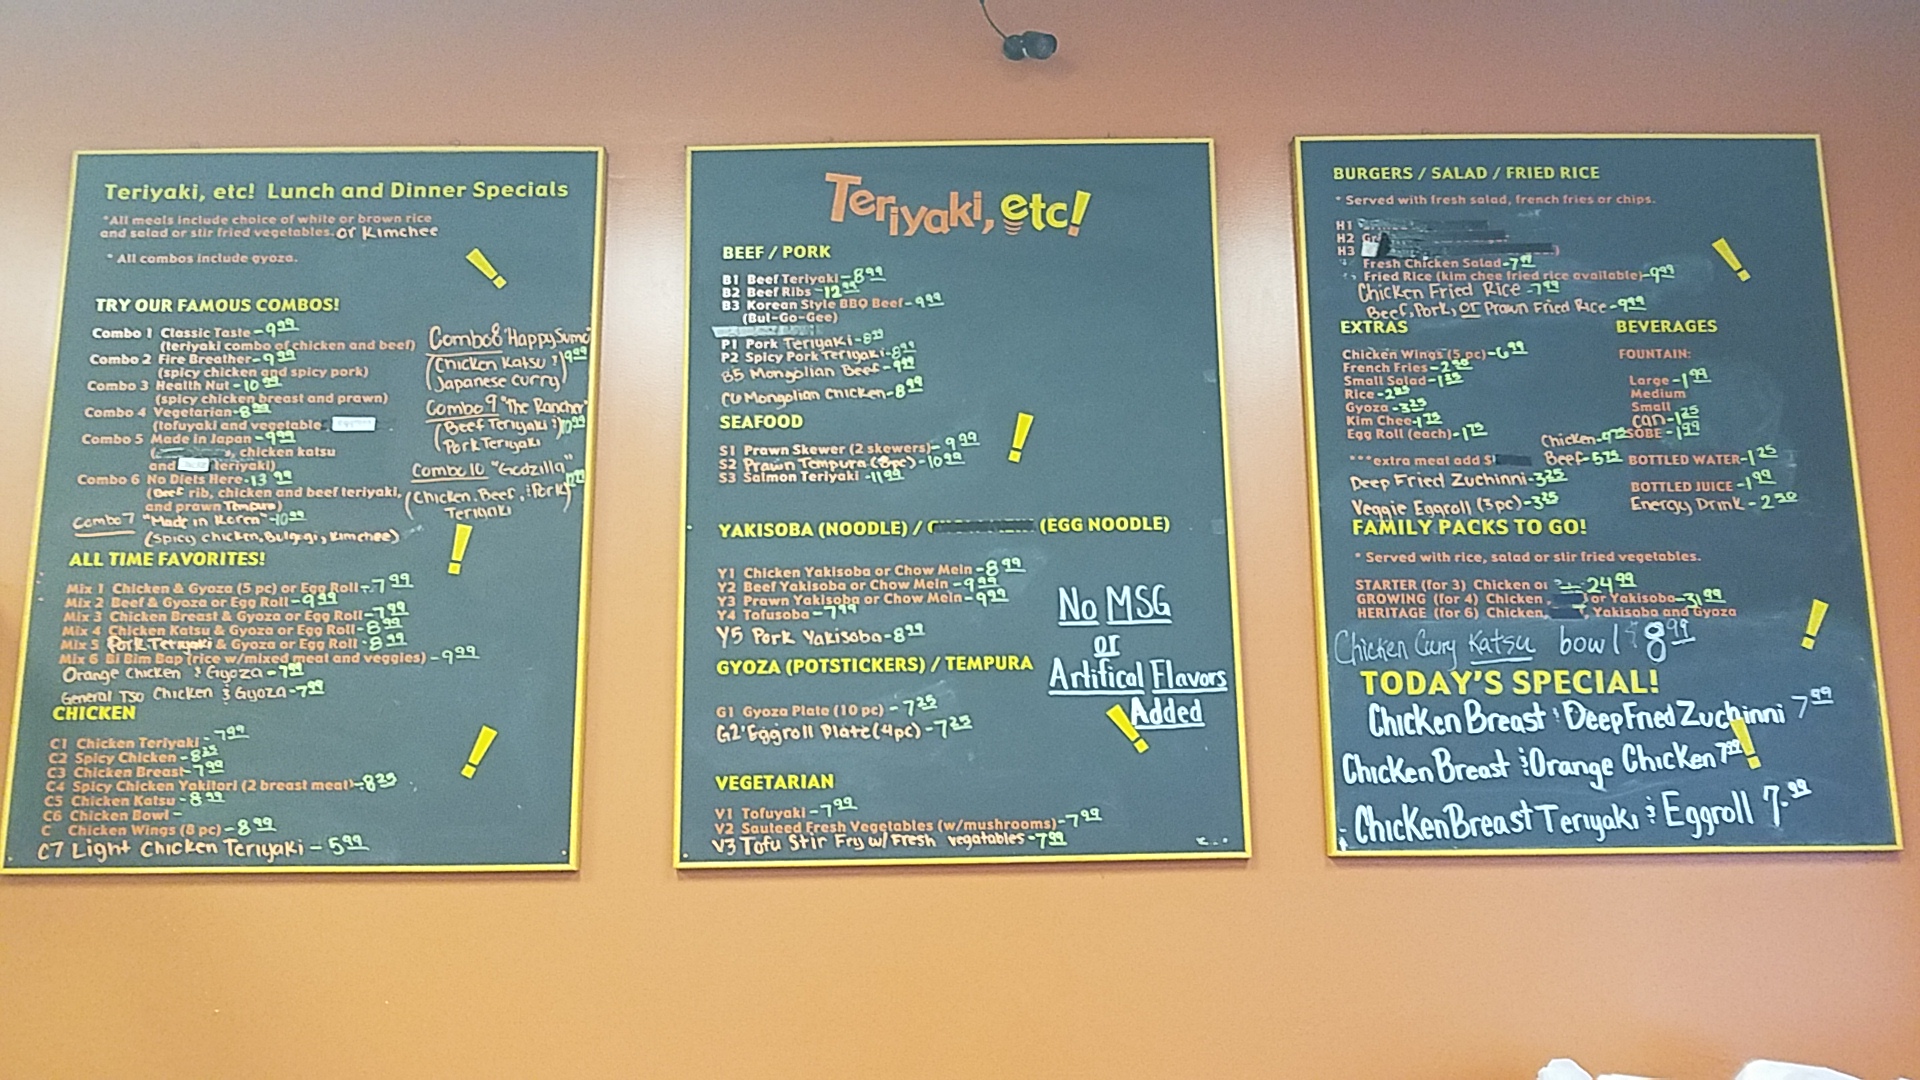 Teriyaki, etc! Lunch and Dinner Specials
*All meals include choice of white or brown rice
and salad or stir fried vegetables. or Kimchee
* All combos include gyoza.
TRY OUR FAMOUS COMBOS!
Combo 1 Classic Taste - 9.99
(teriyaki combo of chicken and beef)
Combo 2 Fire Breather - 9.99
(spicy chicken and spicy pork)
Combo 3 Health Nut - 10.99
(spicy chicken breast and prawn)
Combo 4 Vegetarian - 8.99
(tofuyaki and vegetable
Combo 5 Made in Japan - 9.99
chicken katsu
and teriyaki)
Combo 6 No Diets Here - 13.99
(Beef rib, chicken and beef teriyaki,
and prawn Tempura)
Combo 7 "Made in Korea" - 10.99
(Spicy chicken, Bulgogi, Kimchee)
Combo 8 "Happy Sumo"
(Chicken Katsu & 9.99
Japanese Curry)
Combo 9 "The Rancher"
(Beef Teriyaki & 10.99
Pork Teriyaki)
Combo 10 "Godzilla"
(Chicken, Beef, & Pork)
Teriyaki
ALL TIME FAVORITES!
Mix 1 Chicken & Gyoza (5 pc) or Egg Roll - 7.99
Mix 2 Beef & Gyoza or Egg Roll - 9.99
Mix 3 Chicken Breast & Gyoza or Egg Roll - 7.99
Mix 4 Chicken Katsu & Gyoza or Egg Roll - 8.99
Mix 5 Pork Teriyaki & Gyoza or Egg Roll - 8.99
Mix 6 Bi Bim Bap (rice w/mixed meat and veggies) - 9.99
Orange Chicken & Gyoza - 7.99
General Tso Chicken & Gyoza - 7.99
CHICKEN
C1 Chicken Teriyaki - 7.99
C2 Spicy Chicken - 8.25
C3 Chicken Breast - 7.99
C4 Spicy Chicken Yakitori (2 breast meat) - 8.25
C5 Chicken Katsu - 8.99
C6 Chicken Bowl -
C Chicken Wings (8 pc) - 8.99
C7 Light Chicken Teriyaki - 5.99
Teriyaki, etc!
BEEF / PORK
B1 Beef Teriyaki - 8.99
B2 Beef Ribs - 12.99
B3 Korean Style BBQ Beef - 9.99
(Bul-Go-Gee)
P1 Pork Teriyaki - 8.99
P2 Spicy Pork Teriyaki - 8.99
B5 Mongolian Beef - 9.99
C6 Mongolian Chicken - 8.99
SEAFOOD
S1 Prawn Skewer (2 skewers) - 9.99
S2 Prawn Tempura (8pc) - 10.99
S3 Salmon Teriyaki - 11.99
YAKISOBA (NOODLE) / (EGG NOODLE)
Y1 Chicken Yakisoba or Chow Mein - 8.99
Y2 Beef Yakisoba or Chow Mein - 9.99
Y3 Prawn Yakisoba or Chow Mein - 9.99
Y4 Tofusoba - 7.99
Y5 Pork Yakisoba - 8.99
No MSG
or
Artifical Flavors
Added
GYOZA (POTSTICKERS) / TEMPURA
G1 Gyoza Plate (10 pc) - 7.25
G2 Eggroll Plate (4pc) - 7.25
VEGETARIAN
V1 Tofuyaki - 7.99
V2 Sauteed Fresh Vegetables (w/mushrooms) - 7.99
V3 Tofu Stir Fry w/ Fresh vegatables - 7.99
BURGERS / SALAD / FRIED RICE
* Served with fresh salad, french fries or chips.
H1
H2
H3
Fresh Chicken Salad - 7.99
Fried Rice (kim chee fried rice available) - 9.99
Chicken Fried Rice - 7.99
Beef, Pork, or Prawn Fried Rice - 9.99
EXTRAS
Chicken Wings (5 pc) - 6.99
French Fries - 2.50
Small Salad -
Rice -
Gyoza - 3.25
Kim Chee - 1.75
Egg Roll (each) - 1.75
***extra meat add
Chicken
Beef - 5.75
Deep Fried Zuchinni - 3.25
Veggie Eggroll (3pc) - 3.25
BEVERAGES
FOUNTAIN:
Large - 1.99
Medium
Small
Can - 1.25
SOBE - 1.99
BOTTLED WATER - 1.25
BOTTLED JUICE - 1.99
Energy Drink - 2.50
FAMILY PACKS TO GO!
* Served with rice, salad or stir fried vegetables.
STARTER (for 3) Chicken or 24.99
GROWING (for 4) Chicken or Yakisoba - 31.99
HERITAGE (for 6) Chicken, Yakisoba and Gyoza
Chicken Curry Katsu bowl 8.99
TODAY'S SPECIAL!
Chicken Breast & Deep Fried Zuchinni 7.99
Chicken Breast & Orange Chicken 7.99
Chicken Breast Teriyaki & Eggroll 7.99